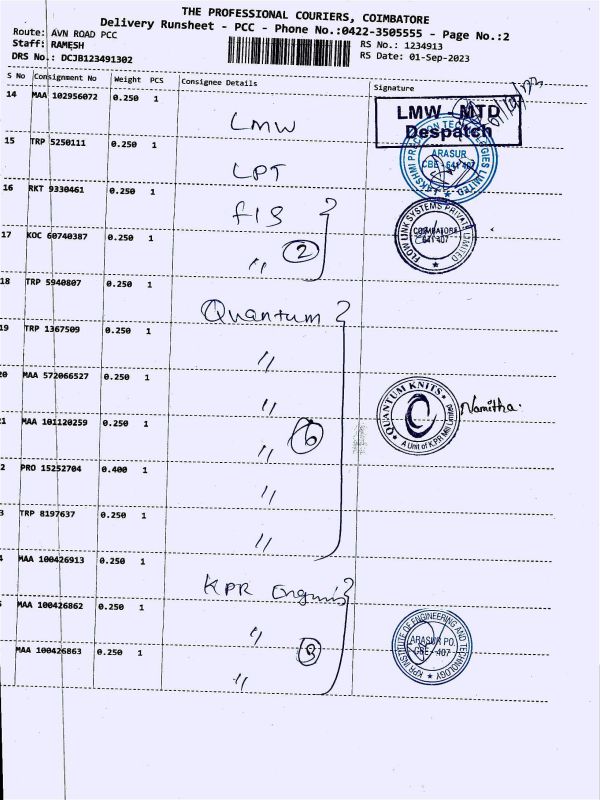 THE PROFESSIONAL COURIERS, COIMBATORE
Delivery Runsheet - PCC - Phone No.:0422-3505555 - Page No.:2
Route: AVN ROAD PCC
RS No.: 1234913
Staff: RAMESH
RS Date: 01-Sep-2023
DRS No.: DCJB123491302
S No Consignment No Weight PCS Consignee Details Signature
14 MAA 102956072 0.250 1 LMW
LMW - MTD
Despatch
15 TRP 5250111 0.250 1 LPT
LAKSHMI PRECISION TECHNOLOGIES LIMITED
ARASUR
CBE - 641 407
16 RKT 9330461 0.250 1 FIS
FLOW LINK SYSTEMS PRIVATE LIMITED
COIMBATORE
641 407
17 KOC 60740387 0.250 1 " 2
18 TRP 5940807 0.250 1 Quantum
19 TRP 1367509 0.250 1 "
0 MAA 572066527 0.250 1 "
QUANTUM KNITS
A Unit of KPR Mill Limited
Namitha.
1 MAA 101120259 0.250 1 " 6
2 PRO 15252704 0.400 1 "
3 TRP 8197637 0.250 1 "
MAA 100426913 0.250 1 KPR
MAA 100426862 0.250 1 "
KPR INSTITUTE OF ENGINEERING AND TECHNOLOGY
ARASUR PO
CBE - 407
MAA 100426863 0.250 1 "